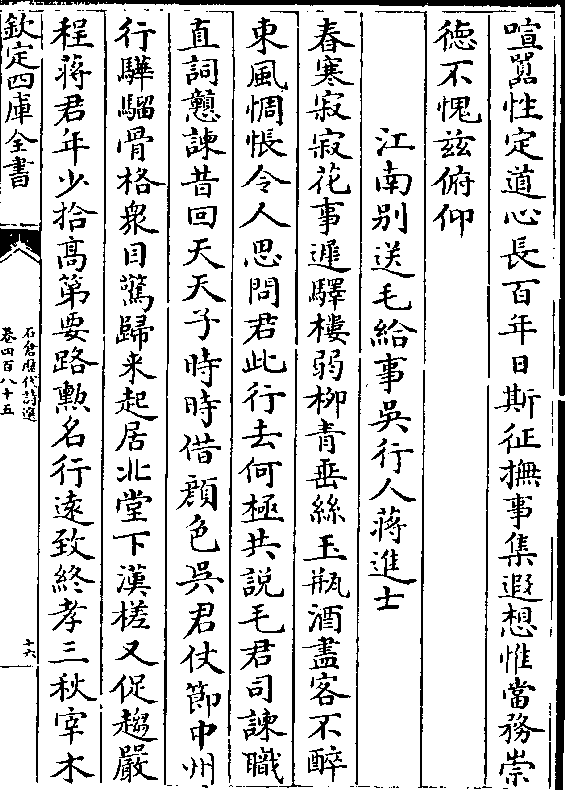 喧嚣性定道心長百年日斯征撫事集遐想惟當務崇
徳不愧兹俯仰
江南别送毛給事吳行人蔣進士
春寒寂寂花事遲驛樓弱柳青垂絲玉瓶酒盡客不醉
東風惆悵令人思問君此行去何極共說毛君司諫職
直詞戆諫昔回天天子時時借顔色吳君仗節中州
行驊騮骨格衆目驚歸来起居北堂下漢槎又促趨嚴
程蔣君年少拾髙第要路勲名行遠致終孝三秋宰木
欽定四庫全書
石倉歴代詩選
卷四百八十五
十六